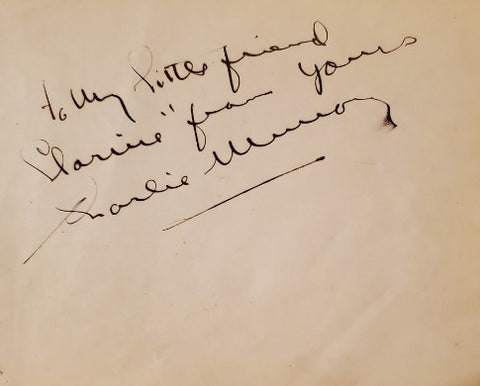 To My Little friend
"Clarine" from Yours
Charlie Murray